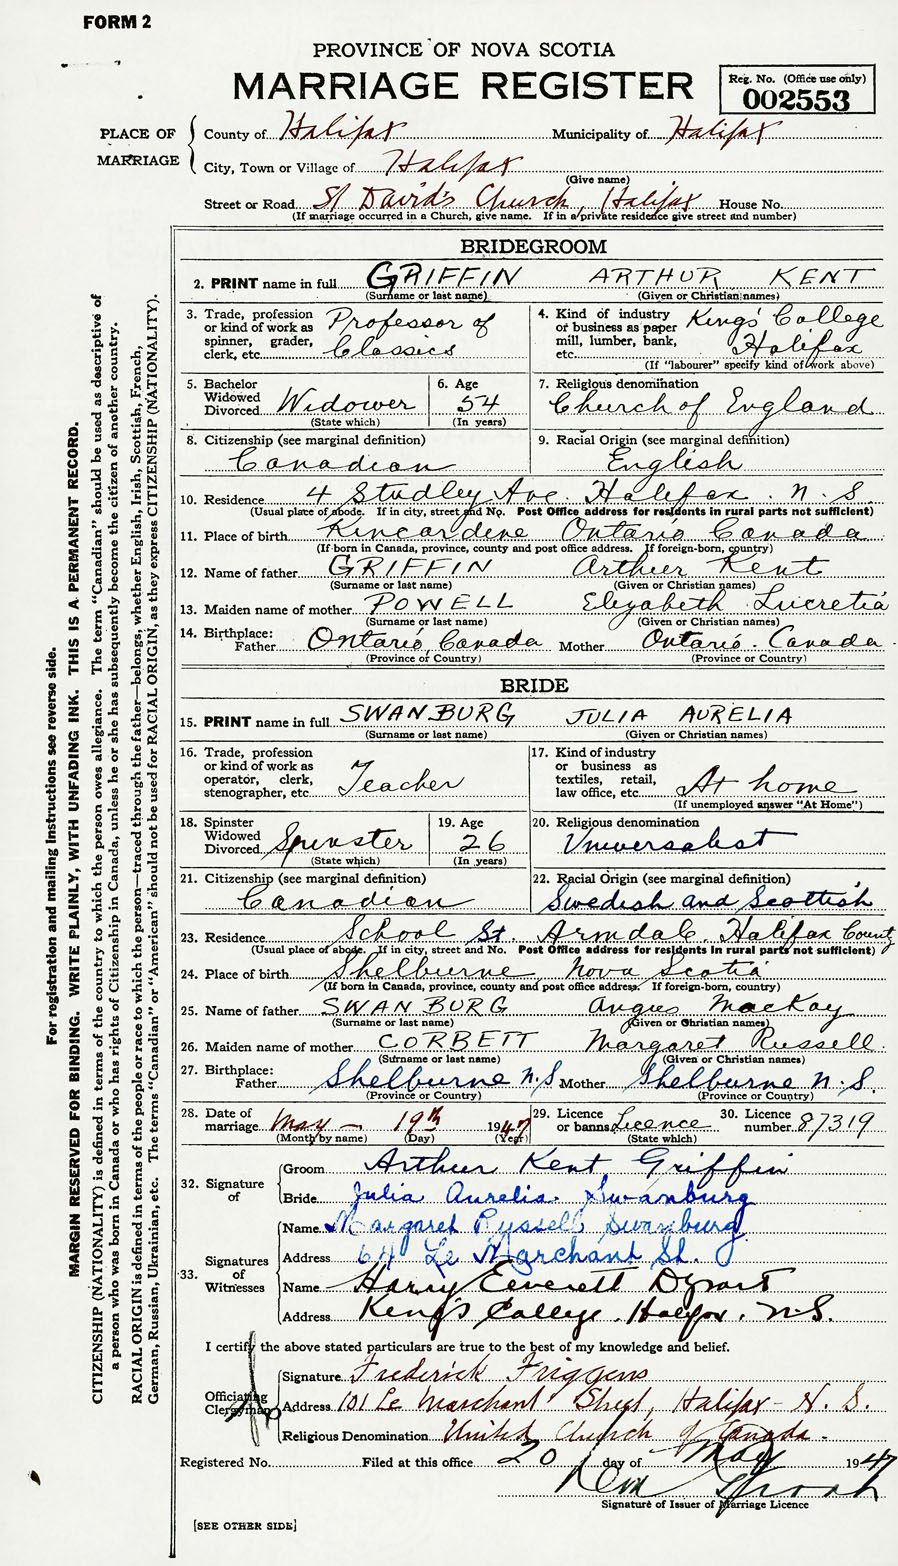 FORM 2
PROVINCE OF NOVA SCOTIA
MARRIAGE REGISTER
Reg. No. (Office use only)
002553
PLACE OF MARRIAGE
County of Halifax Municipality of Halifax
City, Town or Village of Halifax
(Give name)
Street or Road St David's Church, Halifax House No.
(If marriage occurred in a Church, give name. If in a private residence give street and number)
BRIDEGROOM
2. PRINT name in full GRIFFIN ARTHUR KENT
(Surname or last name) (Given or Christian names)
3. Trade, profession or kind of work as spinner, grader, clerk, etc. Professor of Classics
4. Kind of industry or business as paper mill, lumber, bank, etc. Kings' College Halifax
(If "labourer" specify kind of work above)
5. Bachelor Widowed Divorced Widower
(State which)
6. Age 54
(In years)
7. Religious denomination
Church of England
8. Citizenship (see marginal definition)
Canadian
9. Racial Origin (see marginal definition)
English
10. Residence 4 Studley Ave. Halifax. N. S.
(Usual place of abode. If in city, street and No. Post Office address for residents in rural parts not sufficient)
11. Place of birth Kincardine Ontario Canada
(If born in Canada, province, county and post office address. If foreign-born, country)
12. Name of father GRIFFIN Arthur Kent
(Surname or last name) (Given or Christian names)
13. Maiden name of mother POWELL Elizabeth Lucretia
(Surname or last name) (Given or Christian names)
14. Birthplace: Father Ontario, Canada Mother Ontario. Canada
(Province or Country) (Province or Country)
BRIDE
15. PRINT name in full SWANBURG JULIA AURELIA
(Surname or last name) (Given or Christian names)
16. Trade, profession or kind of work as operator, clerk, stenographer, etc. Teacher
17. Kind of industry or business as textiles, retail, law office, etc. At home
(If unemployed answer "At Home")
18. Spinster Widowed Divorced Spinster
(State which)
19. Age 26
(In years)
20. Religious denomination
Universalist
21. Citizenship (see marginal definition)
Canadian
22. Racial Origin (see marginal definition)
Swedish and Scottish
23. Residence School St. Armdale, Halifax County
(Usual place of abode. If in city, street and No. Post Office address for residents in rural parts not sufficient)
24. Place of birth Shelburne, Nova Scotia
(If born in Canada, province, county and post office address. If foreign-born, country)
25. Name of father SWANBURG Angus MacKay
(Surname or last name) (Given or Christian names)
26. Maiden name of mother CORBETT Margaret Russell.
(Surname or last name) (Given or Christian names)
27. Birthplace: Father Shelburne N.S Mother Shelburne N.S.
(Province or Country) (Province or Country)
28. Date of marriage May - 19th 1947
(Month by name) (Day) (Year)
29. Licence or banns Licence
(State which)
30. Licence number 87319
32. Signature of
Groom Arthur Kent Griffin
Bride Julia Aurelia Swanburg
33. Signatures of Witnesses
Name Margaret Russell Swanburg
Address 64 Le Marchant St.
Name Harry Everett Dysart
Address King's College, Halifax, N.S.
I certify the above stated particulars are true to the best of my knowledge and belief.
Officiating Clergyman
Signature Frederick Friggens
Address 101 Le Marchant Street, Halifax - N. S.
Religious Denomination United Church of Canada -
Registered No. Filed at this office 20 day of May 1947
Signature of Issuer of Marriage Licence
[SEE OTHER SIDE]
For registration and mailing instructions see reverse side.
MARGIN RESERVED FOR BINDING. WRITE PLAINLY, WITH UNFADING INK. THIS IS A PERMANENT RECORD.
CITIZENSHIP (NATIONALITY) is defined in terms of the country to which the person owes allegiance. The term "Canadian" should be used as descriptive of
a person who was born in Canada or who has rights of Citizenship in Canada, unless he or she has subsequently become the citizen of another country.
RACIAL ORIGIN is defined in terms of the people or race to which the person—traced through the father—belongs, whether English, Irish, Scottish, French,
German, Russian, Ukrainian, etc. The terms "Canadian" or "American" should not be used for RACIAL ORIGIN, as they express CITIZENSHIP (NATIONALITY).